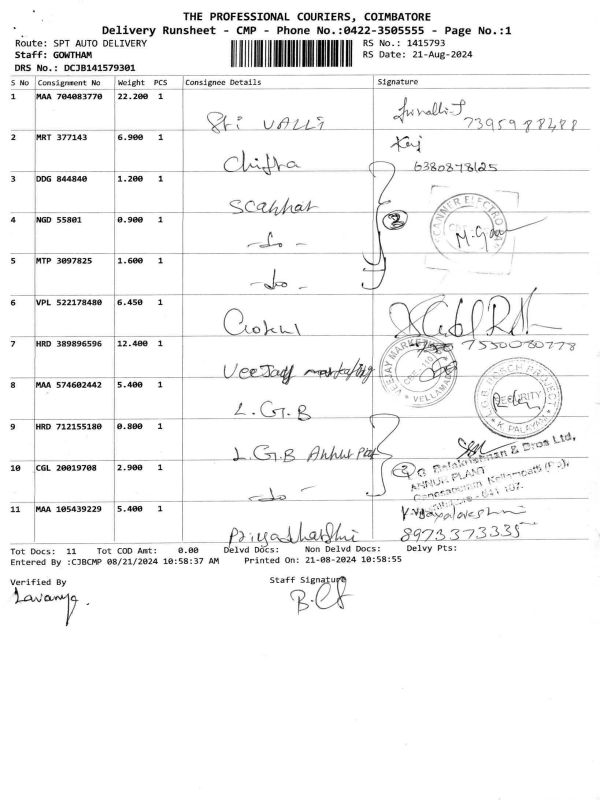 THE PROFESSIONAL COURIERS, COIMBATORE
Delivery Runsheet - CMP - Phone No.:0422-3505555 - Page No.:1
Route: SPT AUTO DELIVERY
RS No.: 1415793
Staff: GOWTHAM
RS Date: 21-Aug-2024
DRS No.: DCJB141579301
S No Consignment No Weight PCS Consignee Details Signature
1 MAA 704083770 22.200 1 Sri VALLI
7395988488
2 MRT 377143 6.900 1 Chitra
6380878125
3 DDG 844840 1.200 1 Scanner
4 NGD 55801 0.900 1 -do-
5 MTP 3097825 1.600 1 -do-
6 VPL 522178480 6.450 1 Gokul
7 HRD 389896596 12.400 1 Veejay marketing 7550080778
8 MAA 574602442 5.400 1 L.G.B
9 HRD 712155180 0.800 1 L.G.B Annur Plant
10 CGL 20019708 2.900 1 -do-
11 MAA 105439229 5.400 1 Priyadharshni
8973373335
SCANNER ELECTRO
M.G
VEEJAY MARKETING
VELLAMADAI
L.G.B. BOSCH PROJECT
SECURITY
K. PALAYAM
L.G. Balakrishnan & Bros Ltd,
ANNUR PLANT
Tot Docs: 11 Tot COD Amt: 0.00 Delvd Docs: Non Delvd Docs: Delvy Pts:
Entered By :CJBCMP 08/21/2024 10:58:37 AM Printed On: 21-08-2024 10:58:55
Verified By
Staff Signature
Lavanya.